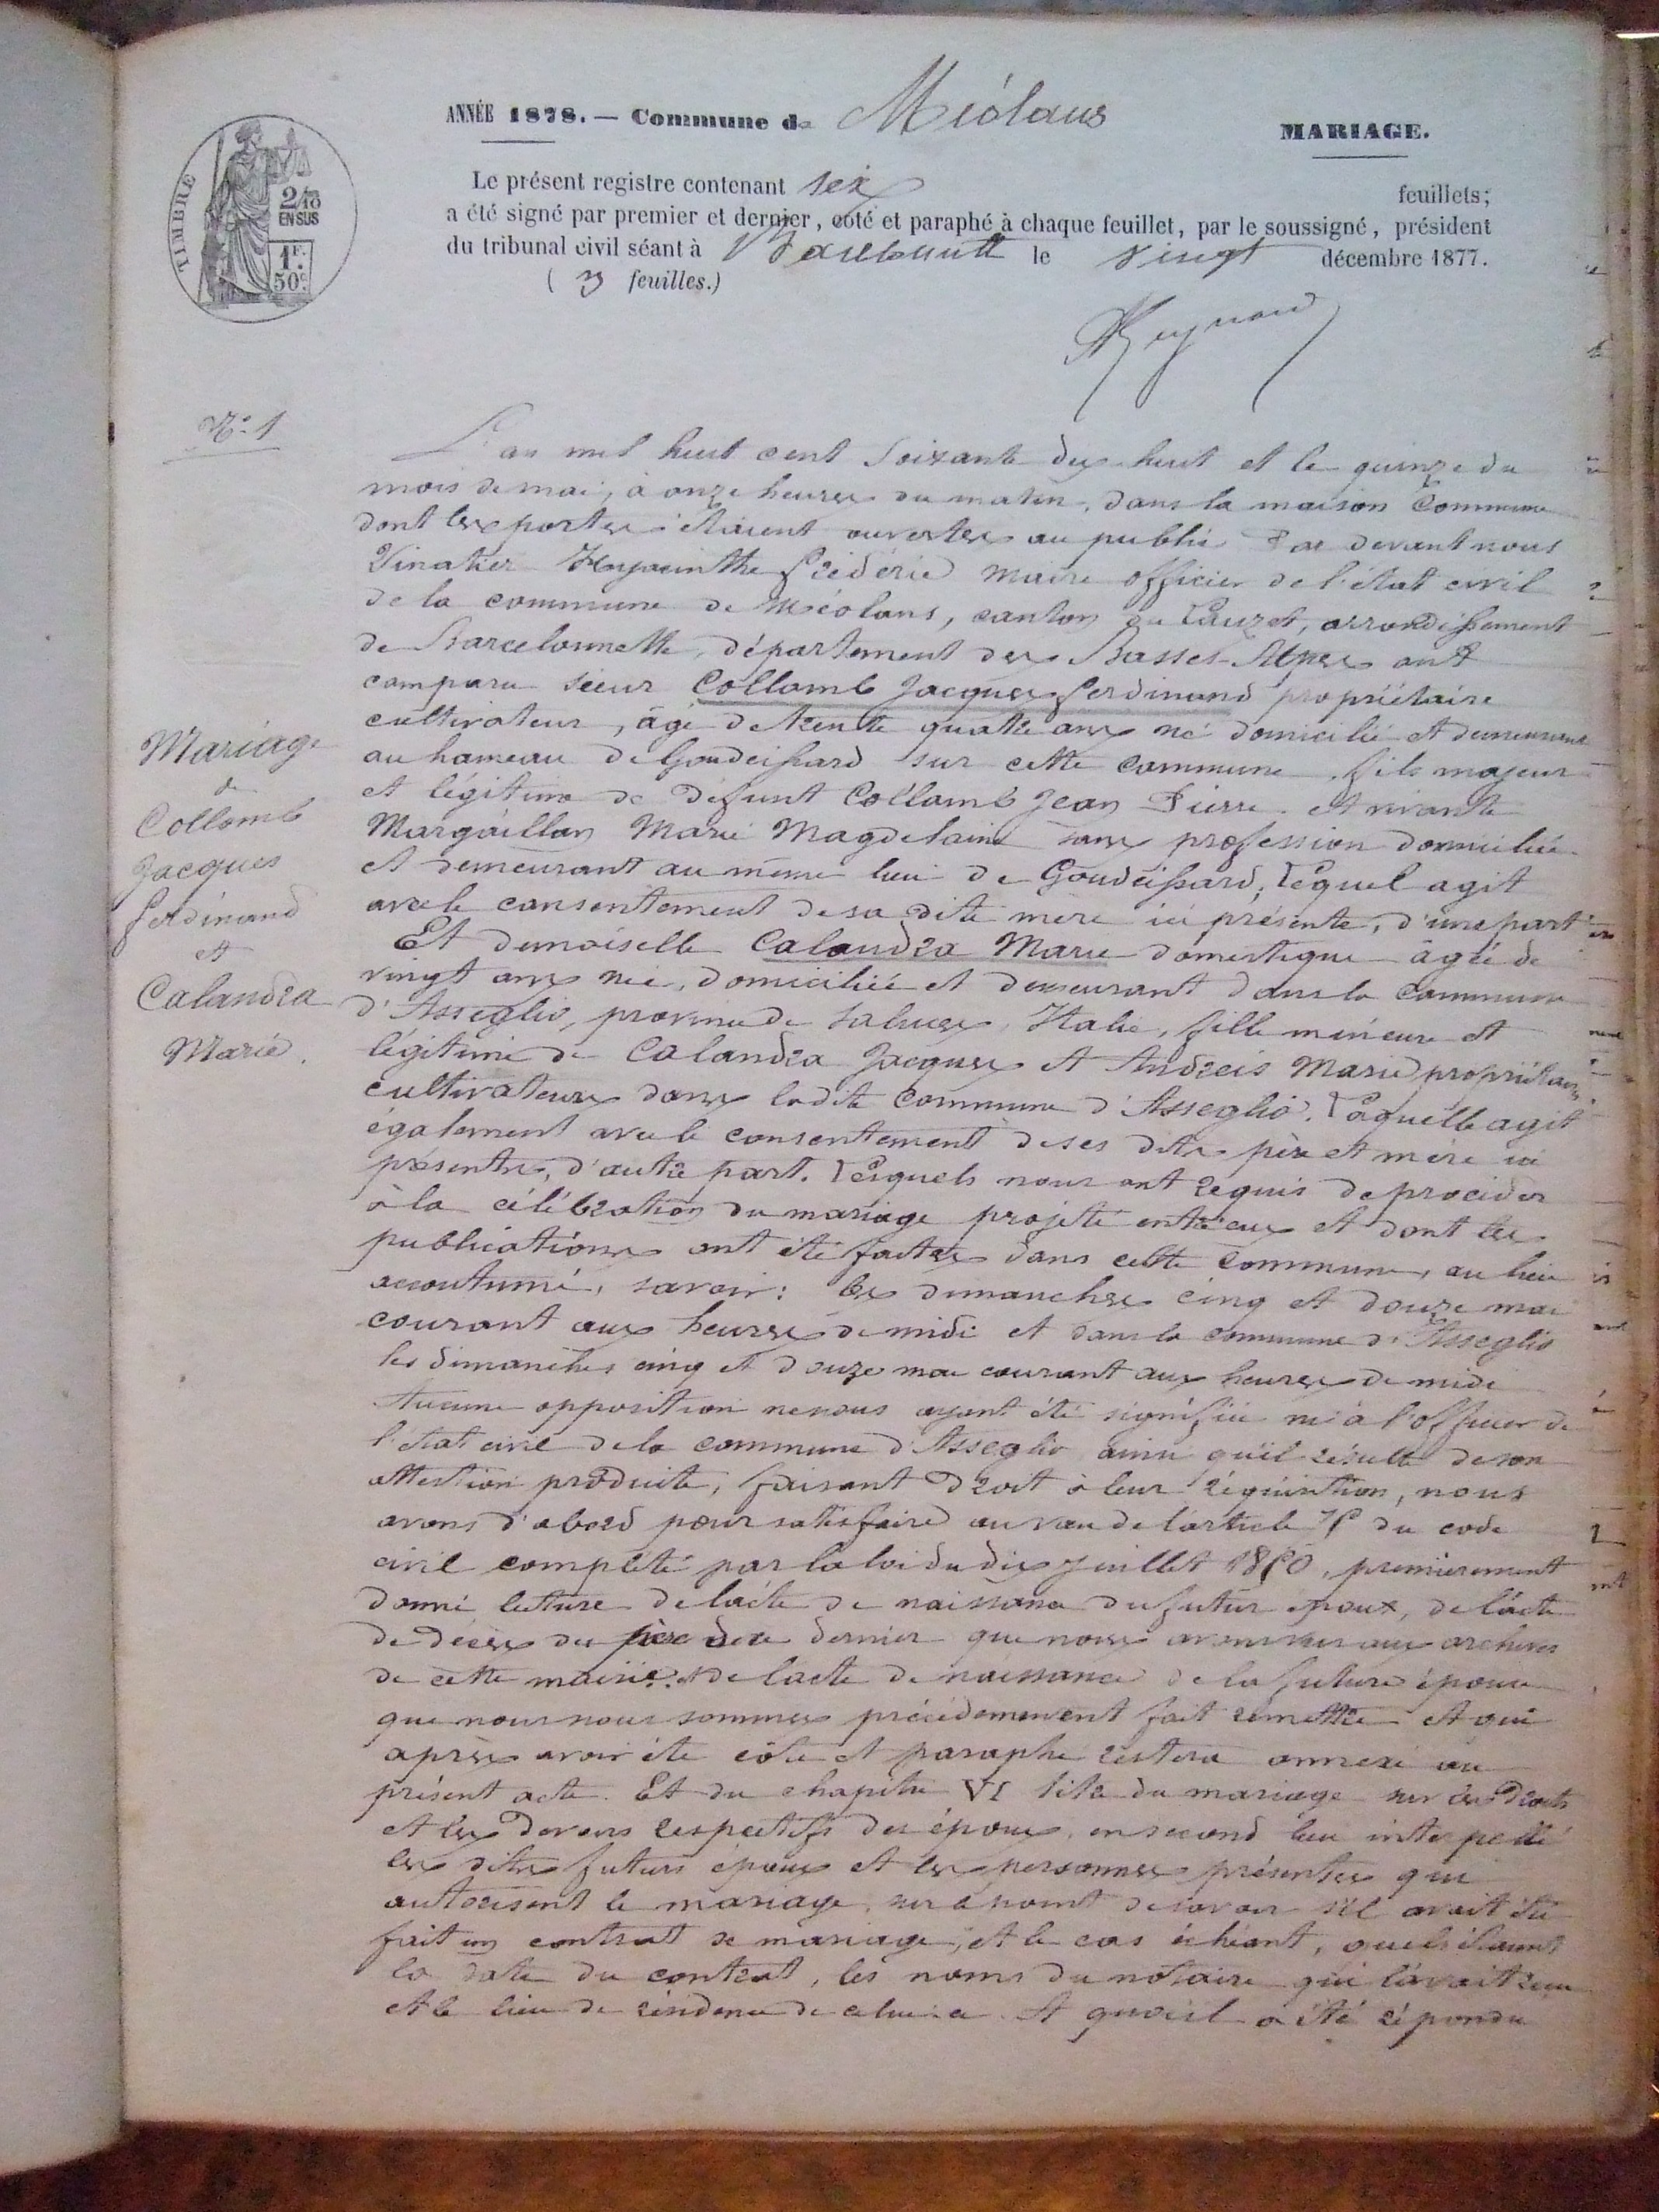 ANNÉE 1878. — Commune de Méolans
MARIAGE.
TIMBRE
2/10
EN SUS
1F.
50c
Le présent registre contenant six feuillets;
a été signé par premier et dernier, coté et paraphé à chaque feuillet, par le soussigné, président
du tribunal civil séant à Barcelonnette le vingt décembre 1877.
( 3 feuilles.)
N° 1
Mariage
de
Collomb
Jacques
ferdinand
et
Calandra
Marie.
L'an mil huit cent soixante dix huit et le quinze du
mois de mai, à onze heures du matin, dans la maison commune
dont les portes étaient ouvertes au public Par devant nous
Vinatier Hyacinthe Frédéric maire officier de l'état civil
de la commune de Méolans, canton du Lauzet, arrondissement
de Barcelonnette, département des Basses-Alpes ont
comparu sieur Collomb Jacques ferdinand propriétaire
cultivateur, âgé de trente quatre ans né domicilié et demeurant
au hameau de Goudeissard sur cette commune, fils majeur
et légitime de défunt Collomb Jean Pierre et vivante
Margaillan Marie Magdelaine sans profession domiciliée
et demeurant au même lieu de Goudeissard, lequel agit
avec le consentement de sa dite mère ici présente, d'une part
Et demoiselle Calandra Marie domestique âgée de
vingt ans née, domiciliée et demeurant dans la commune
d'Asseglio, province de Saluces, Italie, fille mineure et
légitime de Calandra Jacques et Andreis Marie propriétaires
cultivateurs dans ladite commune d'Asseglio. Laquelle agit
également avec le consentement de ses dits père et mère ici
présents, d'autre part. Lesquels nous ont requis de procéder
à la célébration du mariage projeté entre eux et dont les
publications ont été faites dans cette commune, au lieu
accoutumé, savoir: les dimanches cinq et douze mai
courant aux heures de midi et dans la commune d'Asseglio
les dimanches cinq et douze mai courant aux heures de midi
Aucune opposition ne nous ayant été signifiée ni à l'officier de
l'état civil de la commune d'Asseglio ainsi qu'il résulte de son
attestion produite, faisant droit à leur réquisition, nous
avons d'abord pour satisfaire au vœu de l'article 75 du code
civil complété par la loi du dix juillet 1850, premièrement
donné lecture de l'acte de naissance du futur époux, de l'acte
de décès du père de ce dernier que nous avons vus aux archives
de cette mairie, et de l'acte de naissance de la future épouse
que nous nous sommes précédemment fait remettre et qui
après avoir été côté et paraphé restera annexé au
présent acte. Et du chapitre VI titre du mariage sur les droits
et les devoirs respectifs des époux, en second lieu interpellé
les dits futurs époux et les personnes présentes qui
autorisent le mariage, sur le point de savoir s'il avait été
fait un contrat de mariage, et le cas échéant, quels étaient
la date du contrat, les noms du notaire qui l'avait reçu
et le lieu de résidence de celui-ci. A quoi il a été répondu